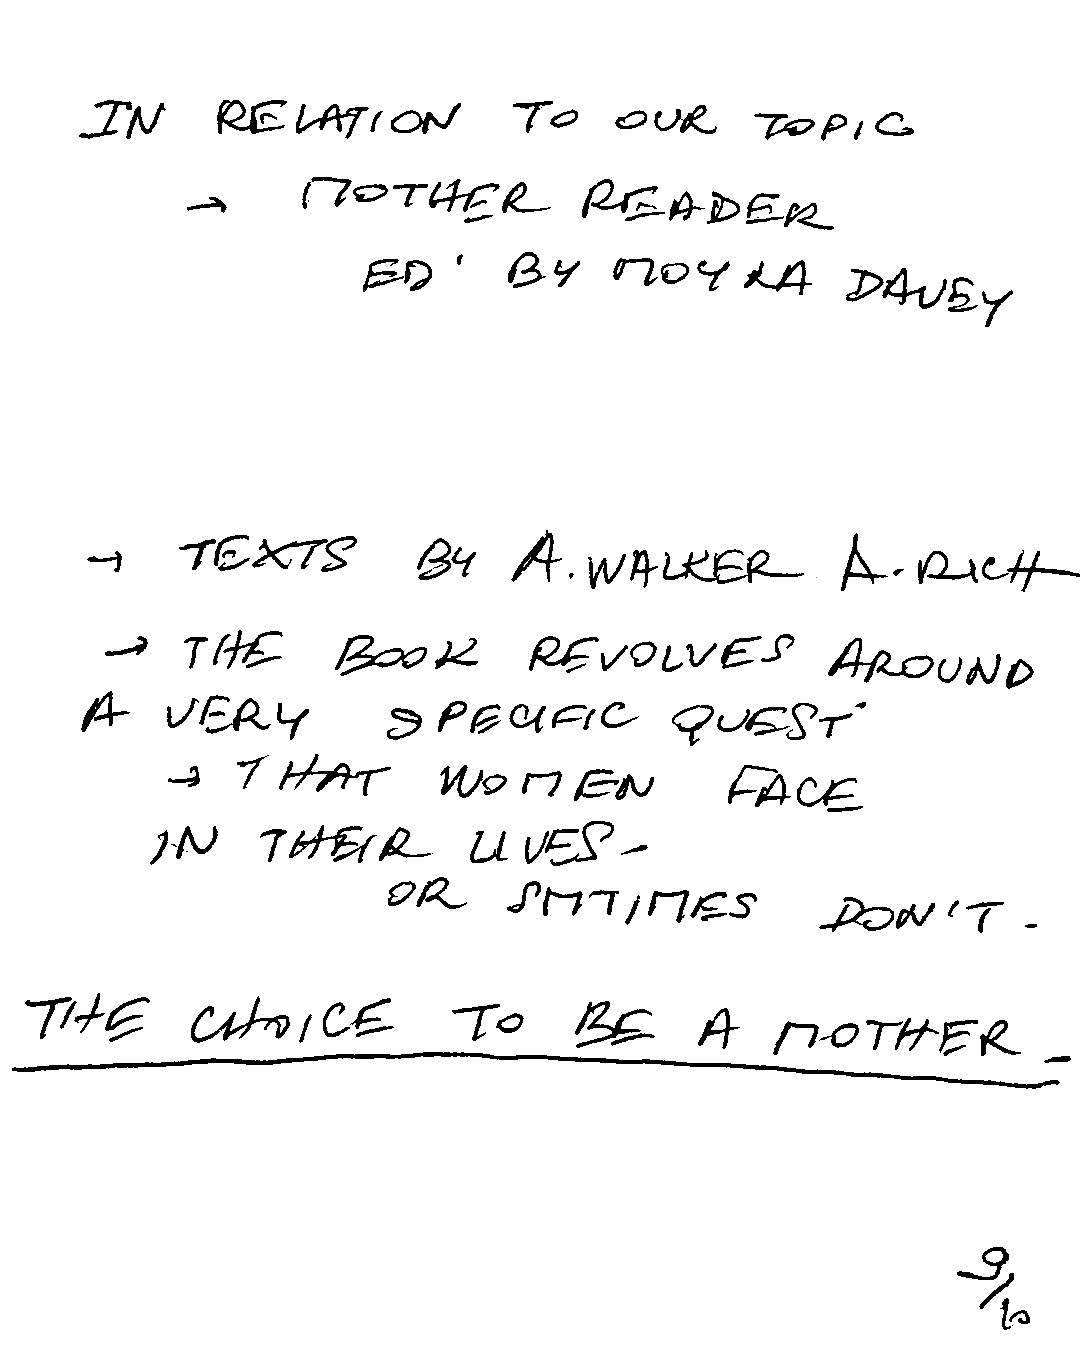 IN RELATION TO OUR TOPIC
→ MOTHER READER
ED' BY MOYRA DAVEY
→ TEXTS BY A. WALKER A. RICH
→ THE BOOK REVOLVES AROUND
A VERY SPECIFIC QUEST'
→ THAT WOMEN FACE
IN THEIR LIVES -
OR SMTIMES DON'T.
THE CHOICE TO BE A MOTHER -
9/10